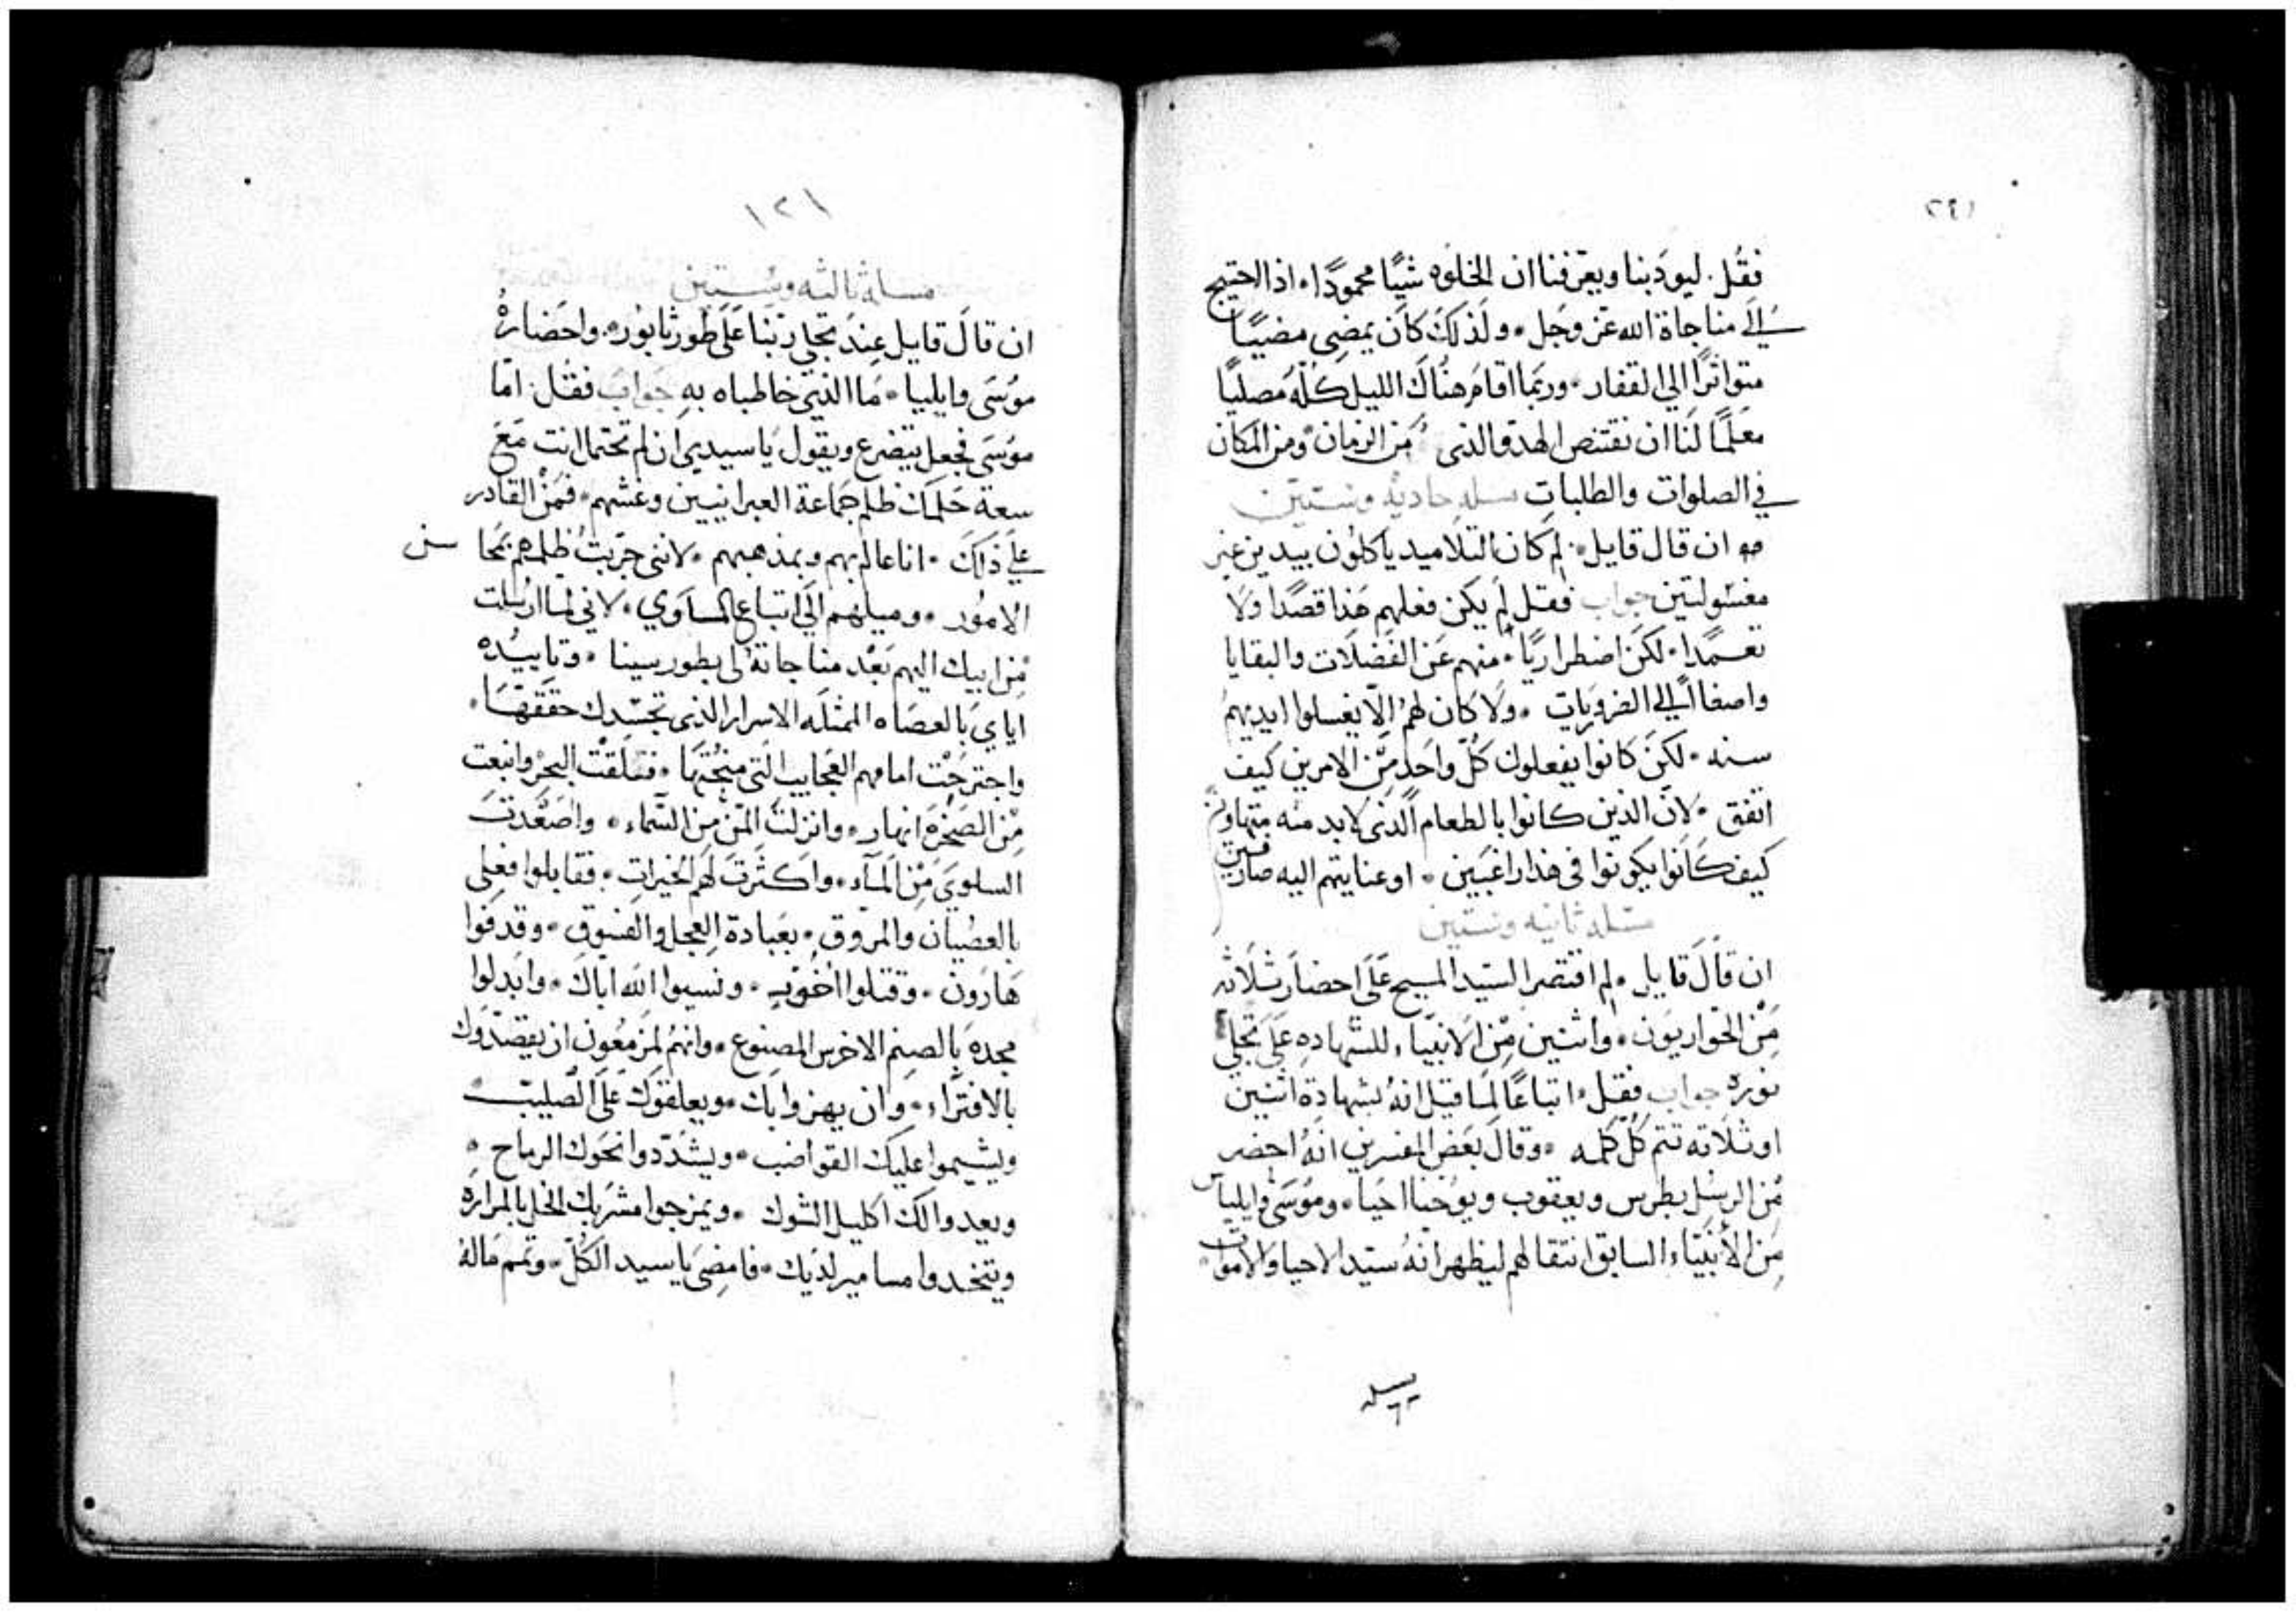 فقُل. ليودبنا ويعرفنا ان الخلوه شيًا محمودًا. اذا احتيج
الى مناجاة الله عز وجل. ولذلك كان يمضى مضيًا
متواترًا الى القفار. وربما اقام هناك الليل كله مصليًا
معلمًا لنا ان نقتنص الهدو الذى من الزمان ومن المكان
في الصلوات والطلبات مسله حاديه وستين
ان قال قايل. لم كان التلاميد ياكلون بيدين غير
مغسولتين جواب فقل لم يكن فعلهم هذا قصدًا ولا
تعمدًا. لكن اضطراريًا. منهم عن الفضلات والبقايا
واصغا الى الضروريات. ولا كان لهم الا يغسلوا ايديهم
سنه. لكن كانوا يفعلون كل واحد من الامرين كيف
اتفق. لان الذين كانوا بالطعام الذى لا بد منه متهاونين
كيف كانوا يكونوا في هذا راغبين. او عنايتهم اليه صارفين
مسله ثانيه وستين
ان قال قايل. لم اقتصر السيد المسيح على احضار ثلاثه
من الحواريون. واثنين من الانبياء للشهاده على تجلى
نوره جواب فقل. اتباعًا لما قيل انه بشهادة اثنين
او ثلاثه تتم كل كلمه. وقال بعض المفسرين انه احضر
من الرسل بطرس ويعقوب ويوحنا احيا. وموسى وايلياس
من الانبياء السابق انتقالهم ليظهر انه سيد الاحيا والاموات.
١٢١
مسله ثالثه وستين
ان قال قايل عند تجلي ربنا على طور ثابور. واحضاره
موسى وايليا. ما الذي خاطباه به جواب فقل. اما
موسى فجعل يتضرع ويقول يا سيدي ان لم تحتمل انت مع
سعة حلمك ظلم جماعة العبرانيين وغشهم. فمن القادر
على ذلك. انا عالم بهم وبمذهبهم. لانني جربت ظلمهم محاسن
الامور. وميلهم الى اتباع المساوي. لاني لما ارسلت
من ابيك اليهم بعد مناجاته لى بطور سينا. وتاييده
اياي بالعصاه الممثله الاسرار الذى تجسدك حققها.
واجترحت امامهم العجايب التى منحتها. ففلقت البحر وانبعت
من الصخره انهار. وانزلت المن من السماء. واصعدت
السلوي من الماء. واكثرت لهم الخيرات. فقابلوا فعلى
بالعصيان والمروق. بعبادة العجل والفسوق. وقدفوا
هارون. وقتلوا اخوتي. ونسيوا الله اباك. وابدلوا
مجده بالصنم الاخرس المصنوع. وانهم لمزمعون ان يقصدوك
بالافتراء. وان يهزوا بك. ويعلقوك على الصليب.
ويشيموا عليك القواضب. ويشددوا نحوك الرماح.
ويعدوا لك اكليل الشوك. ويمزجوا مشربك الخل بالمراره
ويتخدوا مسامير لديك. فامضى يا سيد الكل. وتمم ماله